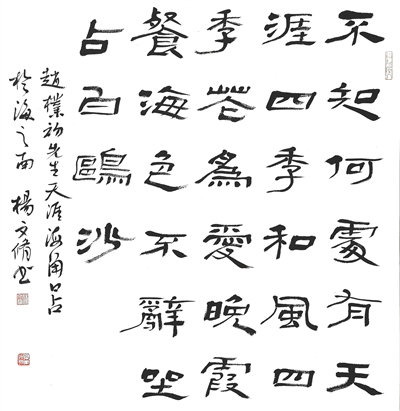 不知何處有天
涯四季和風四
季花爲愛晚霞
餐海色不辭坐
占白鷗沙
趙樸初先生天涯海角口占
於海之南 楊文脩书